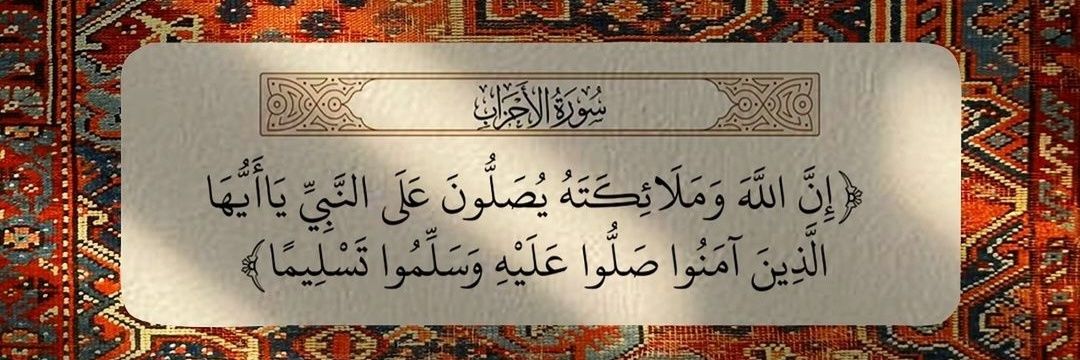 سُورَةُ الأَحْزَابِ
﴿إِنَّ اللَّهَ وَمَلَائِكَتَهُ يُصَلُّونَ عَلَى النَّبِيِّ يَاأَيُّهَا
الَّذِينَ آمَنُوا صَلُّوا عَلَيْهِ وَسَلِّمُوا تَسْلِيمًا﴾